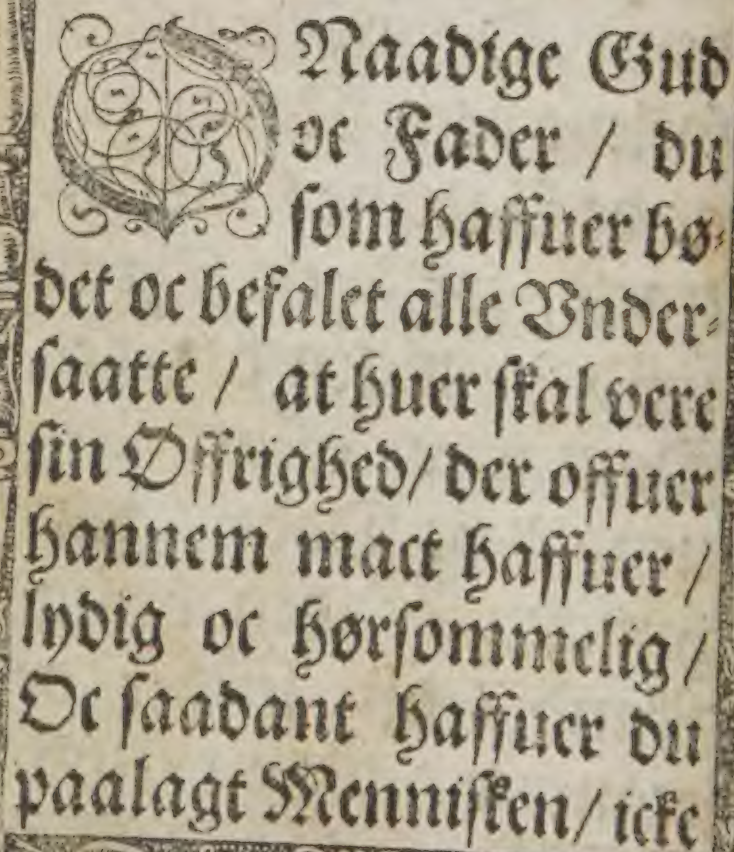 O Naadige Gud
oc Fader / du
som haffuer bø⸗
det oc befalet alle Vnder⸗
saatte / at huer skal vere
sin Øffrighed / der offuer
hannem mact haffuer /
lydig oc hørsommelig /
Oc saadant haffuer du
paalagt Mennisken / icke